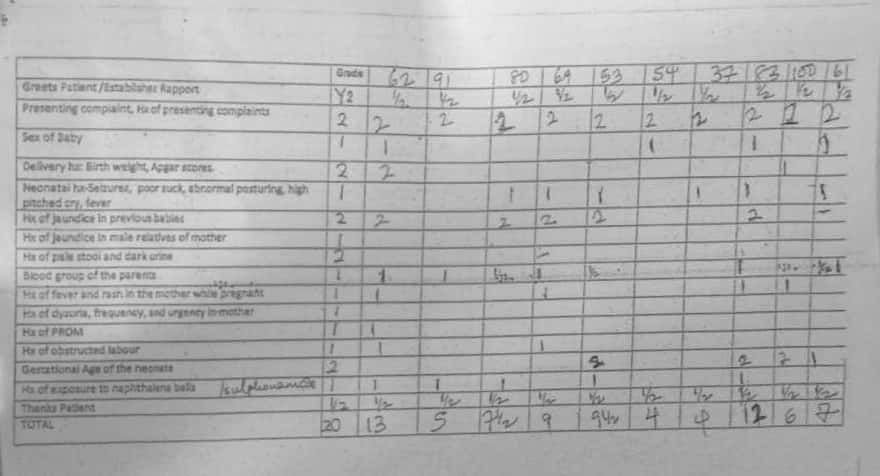 Grade 62 91 80 69 53 54 37 83 100 61
Greets Patient/Establishes Rapport Y2 1/2 1/2 1/2 1/2 1/2 1/2 1/2 1/2 1/2 1/2
Presenting complaint, Hx of presenting complaints 2 2 2 2 2 2 2 2 2 2 2
Sex of Baby 1 1 1 1 1
Delivery hx: Birth weight, Apgar scores 2 2 1
Neonatal hx-Seizures, poor suck, abnormal posturing, high 1 1 1 1 1 1 1
pitched cry, fever
Hx of jaundice in previous babies 2 2 2 2 2 2 -
Hx of jaundice in male relatives of mother 1
Hx of pale stool and dark urine 2 -
Blood group of the parents 1 1 1 1/2 1 1/2 1
Hx of fever and rash in the mother while pregnant 1 1 1 1 1
Hx of dysuria, frequency, and urgency in mother 1
Hx of PROM 1 1
Hx of obstructed labour 1 1 1
Gestational Age of the neonate 2 2 2 2 1
Hx of exposure to naphthalene balls /sulphonamide 1 1 1 1 1 1
Thanks Patient 1/2 1/2 1/2 1/2 1/2 1/2 1/2 1/2 1/2 1/2 1/2
TOTAL 20 13 5 7 1/2 9 9 1/2 4 4 12 6 7